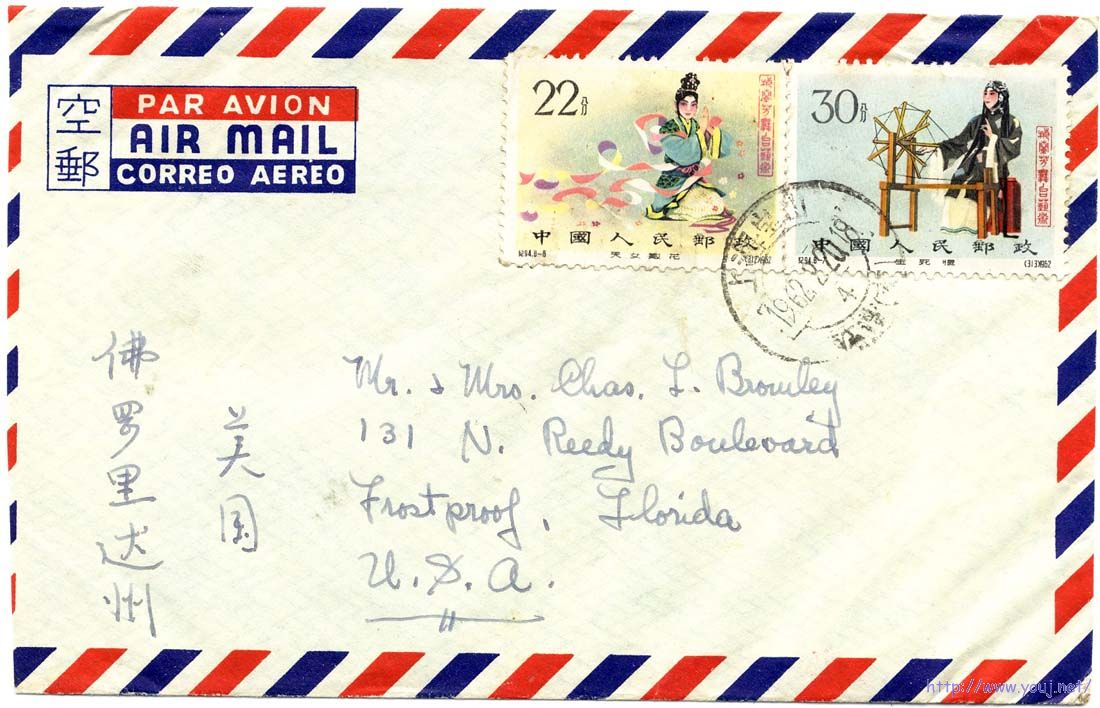 空郵
PAR AVION
AIR MAIL
CORREO AEREO
22分
中國人民郵政
天女散花
30分
中國人民郵政
生死恨
1962
1962.2.20.18
4
美国
佛罗里达州
Mr. & Mrs. Chas. L. Bromley
131 N. Reedy Boulevard
Frostproof, Florida
U.S.A.
http://www.youj.net/